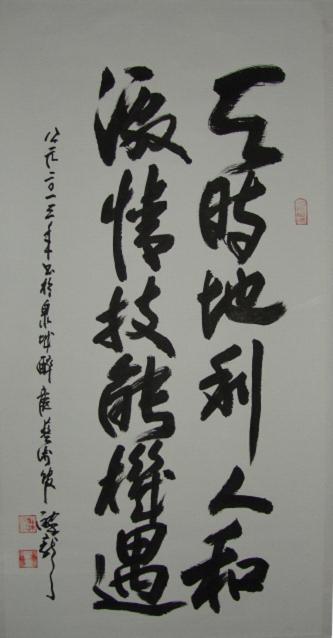 天時地利人和
激情技能機遇
公元二〇一三年書於泉城醉庵藝術館